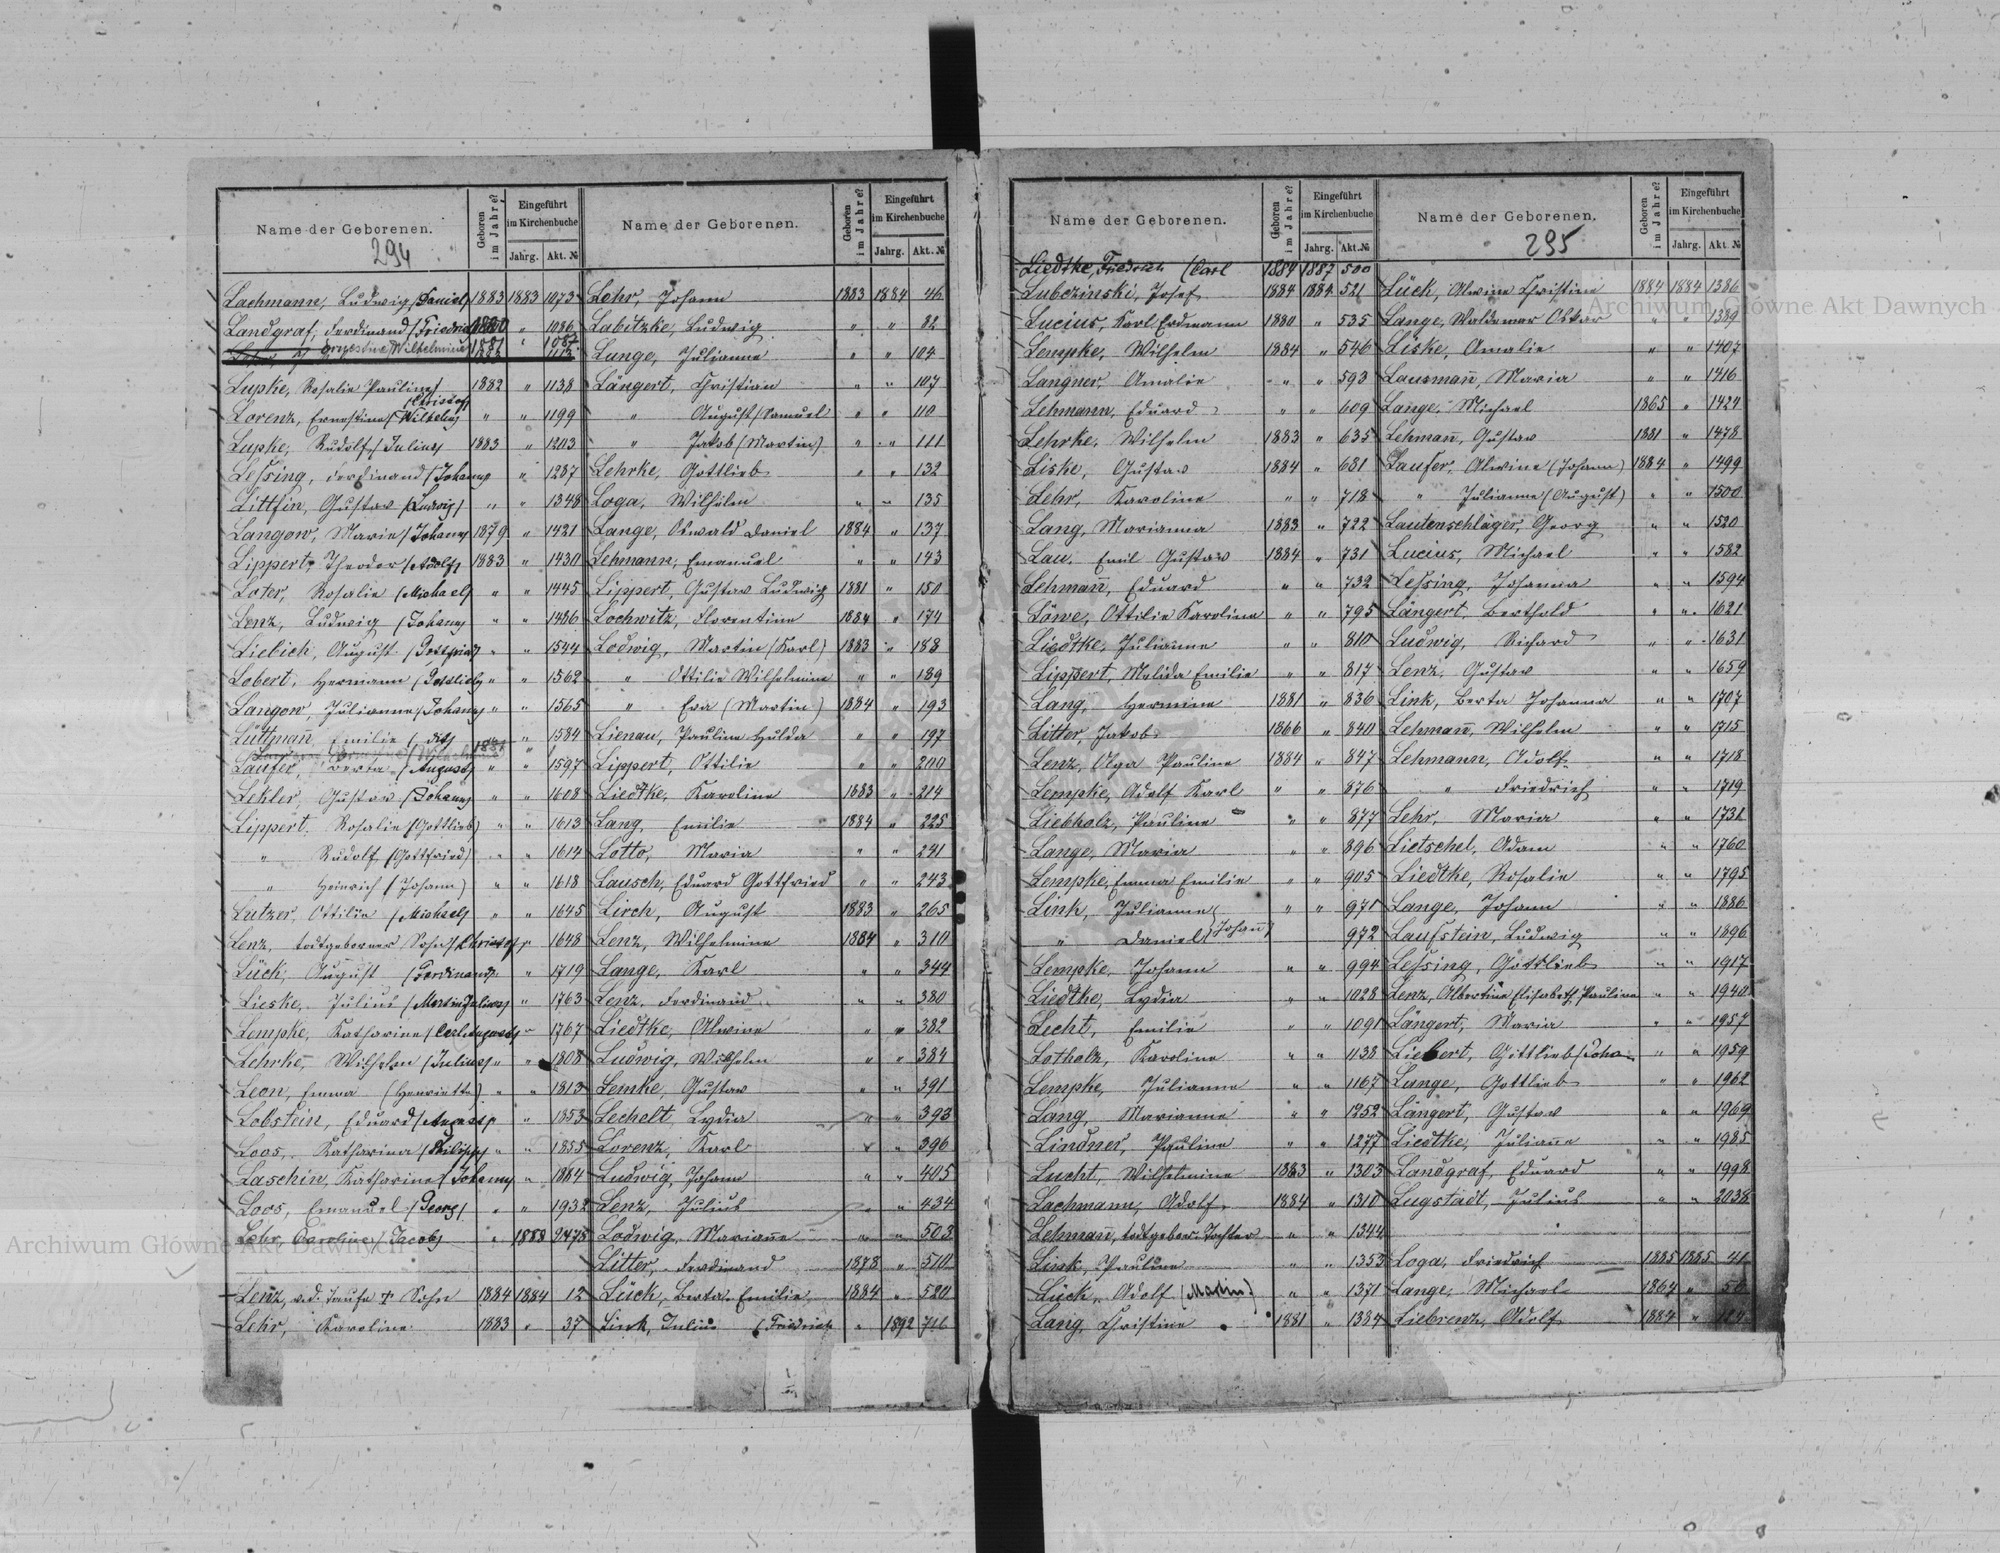 Name der Geborenen.
Geboren im Jahre?
Eingeführt im Kirchenbuche
Jahrg.
Akt. №
294
Lachmann, Ludwig (Daniel) 1883 1883 1073
Landgraf, Ferdinand (Friedrich) 1880 " 1086
Ernestine (Wilhelmine) 1881 " 1087
Lupke, Rosalie Pauline (Christof) 1882 " 1138
Lorenz, Ernestine (Wilhelm) " " 1199
Lupke, Rudolf (Julius) 1883 " 1203
Lessing, Ferdinand (Johann) " 1287
Littfin, Gustav (Ludwig) " " 1348
Langow, Maria (Johann) 1879 " 1421
Lippert, Theodor (Adolf) 1883 " 1430
Loter, Rosalie (Michael) " " 1445
Lenz, Ludwig (Johann) " " 1486
Liebich, August (Gottfried) " " 1544
Lobert, Hermann (Gottlieb) " " 1562
Langow, Julianne (Johann) " " 1565
Lüttmañ Emilie " 1584
Laufer, Berta (August) " " 1597
Lekler, Gustav (Johann) " " 1608
Lippert. Rosalie (Gottlieb) " " 1613
" Rudolf (Gottfried) " " 1614
" Heinrich (Johann) " " 1618
Lutzer, Ottilie (Michael) " " 1645
Lenz, todtgeborner Sohn (Christof) " 1648
Lück, August (Ferdinand) " 1719
Lieske, Julius (Martin Julius) " 1763
Lempke, Katharine (Carl August) " 1767
Lehrke, Wilhelm (Julius) " " 1808
Leon, Emma (Henriette) " " 1813
Lobstein, Eduard (August) " 1853
Loos, Katharina (Philipp) " " 1855
Laschin, Katharina (Johann) " 1864
Loos, Emanuel (Georg) " " 1932
Lehr, Caroline (Jacob) " 1888 2475
Lenz, v. d. Taufe † Sohn 1884 1884 12
Lehr, Karoline 1883 " 37
Name der Geborenen.
Geboren im Jahre?
Eingeführt im Kirchenbuche
Jahrg.
Akt. №
Lehr, Johann 1883 1884 46
Labitzke, Ludwig " " 82
Lange, Julianna " " 104
Längert, Christian " " 107
" August (Samuel) " " 110
" Jakob (Martin) " " 111
Lehrke, Gottlieb " " 132
Loga, Wilhelm " " 135
Lange, Oswald Daniel 1884 " 137
Lehmann, Emanuel " " 143
Lippert, Gustav Ludwig 1881 " 150
Lochwitz, Florentine 1884 " 174
Lodwig, Martin (Karl) 1883 " 188
" Ottilie Wilhelmine " " 189
" Eva (Martin) 1884 " 193
Lienau, Pauline Hulda " " 197
Lippert, Ottilie " " 200
Liedtke, Karoline 1883 " 214
Lang, Emilie 1884 " 225
Lotto, Maria " " 241
Lausch, Eduard Gottfried " " 243
Lirch, August 1883 " 265
Lenz, Wilhelmine 1884 " 310
Lange, Karl " " 344
Lenz, Ferdinand " " 380
Liedtke, Alwine " " 382
Ludwig, Wilhelm " " 384
Lemke, Gustav " " 391
Lechelt, Lydia " " 393
Lorenz, Karl " " 396
Ludwig, Johann " " 405
Lenz, Julius " " 434
Lodwig, Marianne " " 503
Litter, Ferdinand 1878 " 510
Lück, Berta Emilie 1884 " 520
Link, Julius (Friedrich " 1892 716
Name der Geborenen.
Geboren im Jahre?
Eingeführt im Kirchenbuche
Jahrg.
Akt. №
Liedtke, Friedrich (Carl 1884 1887 500
Lubczinski, Josef 1884 1884 521
Lucius, Karl Erdmann 1880 " 535
Lempke, Wilhelm 1884 " 546
Langner, Amalie " " 593
Lehmann, Eduard " " 609
Lehrke, Wilhelm 1883 " 635
Liske, Gustav 1884 " 681
Lehr, Karoline " " 718
Lang, Marianna 1883 " 722
Lau, Emil Gustav 1884 " 731
Lehmañ, Eduard " " 732
Löwe, Ottilie Karoline " " 795
Liedtke, Julianne " " 810
Lippert, Malida Emilie " " 817
Lang, Hermine 1881 " 836
Litter, Jakob 1866 " 840
Lenz, Olga Pauline 1884 " 847
Lempke, Adolf Karl " " 876
Liebholz, Pauline " " 877
Lange, Maria " " 896
Lempke, Emma Emilie " " 905
Link, Julianne " " 971
" Daniel (Johañ) 972
Lempke, Johann " " 994
Liedtke, Lydia " " 1028
Lecht, Emilie " " 1091
Lotholz, Karoline " " 1138
Lempke, Julianne " " 1167
Lang, Marianne " " 1252
Lindner, Pauline " " 1277
Lucht, Wilhelmine 1883 " 1303
Lachmann, Adolf 1884 " 1310
Lehmañ, todtgebor. Tochter " " 1344
Link, Pauline " " 1353
Lück, Adolf (Martin) " " 1371
Lang, Christine 1881 " 1384
Name der Geborenen.
Geboren im Jahre?
Eingeführt im Kirchenbuche
Jahrg.
Akt. №
295
Lück, Alwine Christine 1884 1884 1386
Lange, Waldemar Oskar " " 1389
Liske, Amalie " " 1407
Lausmañ, Maria " " 1416
Lange, Michael 1865 " 1424
Lehmañ, Gustav 1881 " 1478
Laufer, Alwine (Johann) 1884 " 1499
" Julianne (August) " " 1500
Lautenschläger, Georg " " 1520
Lucius, Michael " " 1582
Lessing, Johanna " " 1594
Längert, Berthold " " 1621
Ludwig, Richard " " 1631
Lenz, Gustav " " 1659
Link, Berta Johanna " " 1707
Lehmañ, Wilhelm " " 1715
Lehmann, Adolf " " 1718
" Friedrich " " 1719
Lehr, Maria " " 1731
Lietschel, Adam " " 1760
Liedtke, Rosalie " " 1795
Lange, Johann " " 1886
Laufstein, Ludwig " " 1896
Lessing, Gottlieb " " 1917
Lenz, Albertine Elisabeth Pauline " " 1940
Längert, Maria " " 1957
Liebert, Gottlieb (Joha " " 1959
Lange, Gottlieb " " 1962
Längert, Gustav " " 1969
Liedtke, Juliane " " 1985
Landgraf, Eduard " " 1998
Lugstadt, Julius " " 2038
Loga, Friedrich 1885 1885 41
Lange, Michael 1864 " 56
Liebrenz, Adolf 1884 " 114
Archiwum Główne Akt Dawnych
Archiwum Główne Akt Dawnych